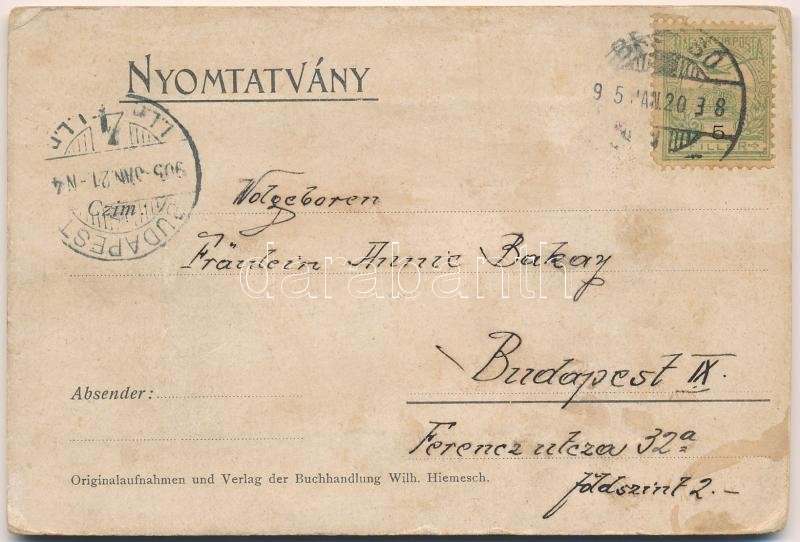 NYOMTATVÁNY
MAGYAR KIR. POSTA
BRASSÓ
905 JAN. 20
5
FILLÉR
BUDAPEST
905 JAN. 21. N4
Czim
Wolgeboren
Fräulein Annie Bakay
darabanth
Budapest IX.
Absender:
Ferencz utcza 32a
földszint 2.–
Originalaufnahmen und Verlag der Buchhandlung Wilh. Hiemesch.